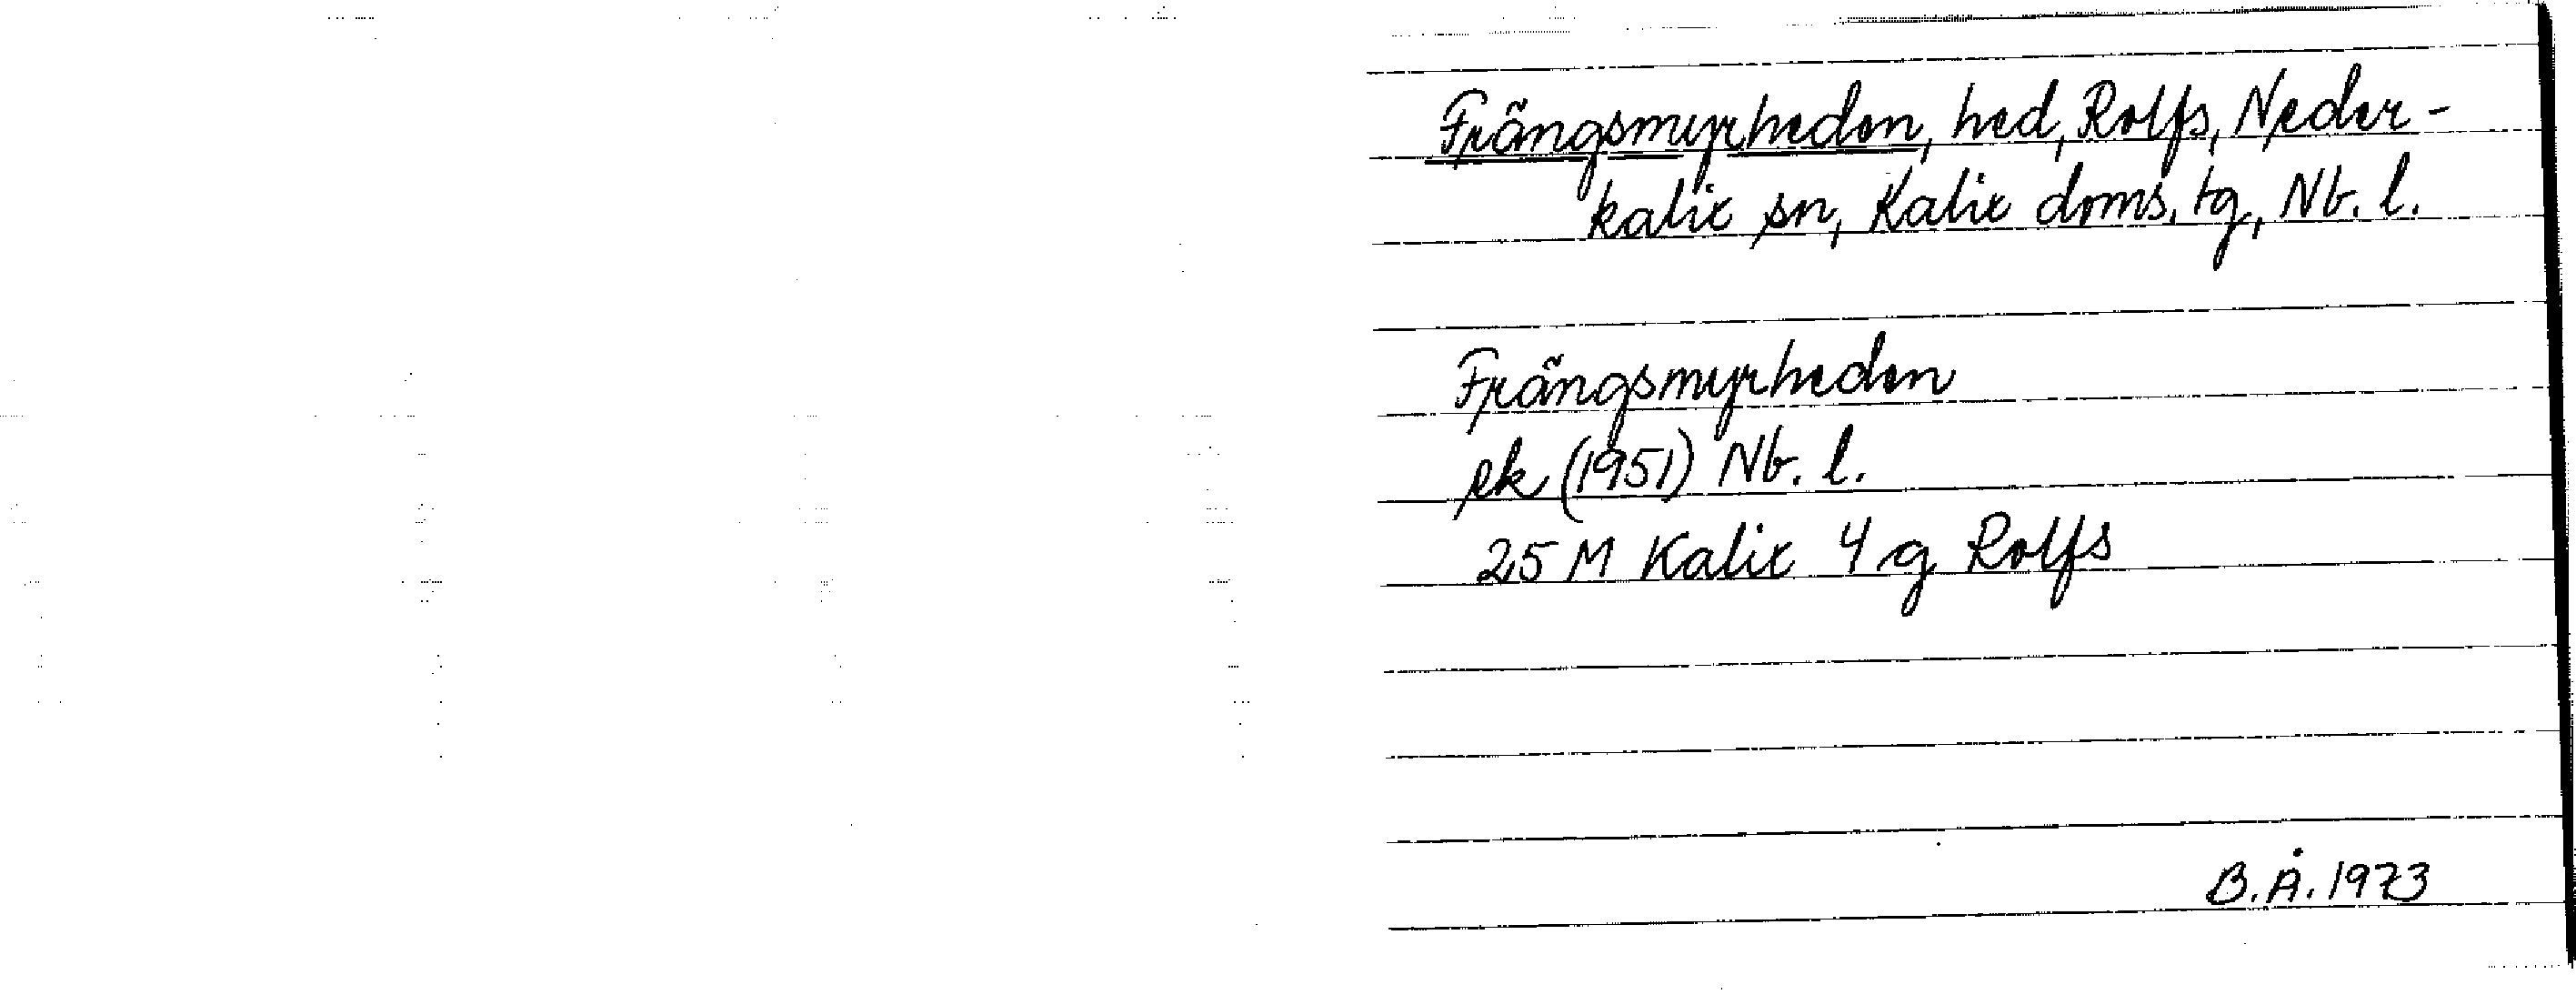 Frängsmyrheden, hed, Rolfs, Neder-
kalix sn, Kalix doms. tg, Nb. l.
Frängsmyrheden
ek (1951) Nb. l.
25 M Kalix 4 g Rolfs
B. Å. 1973